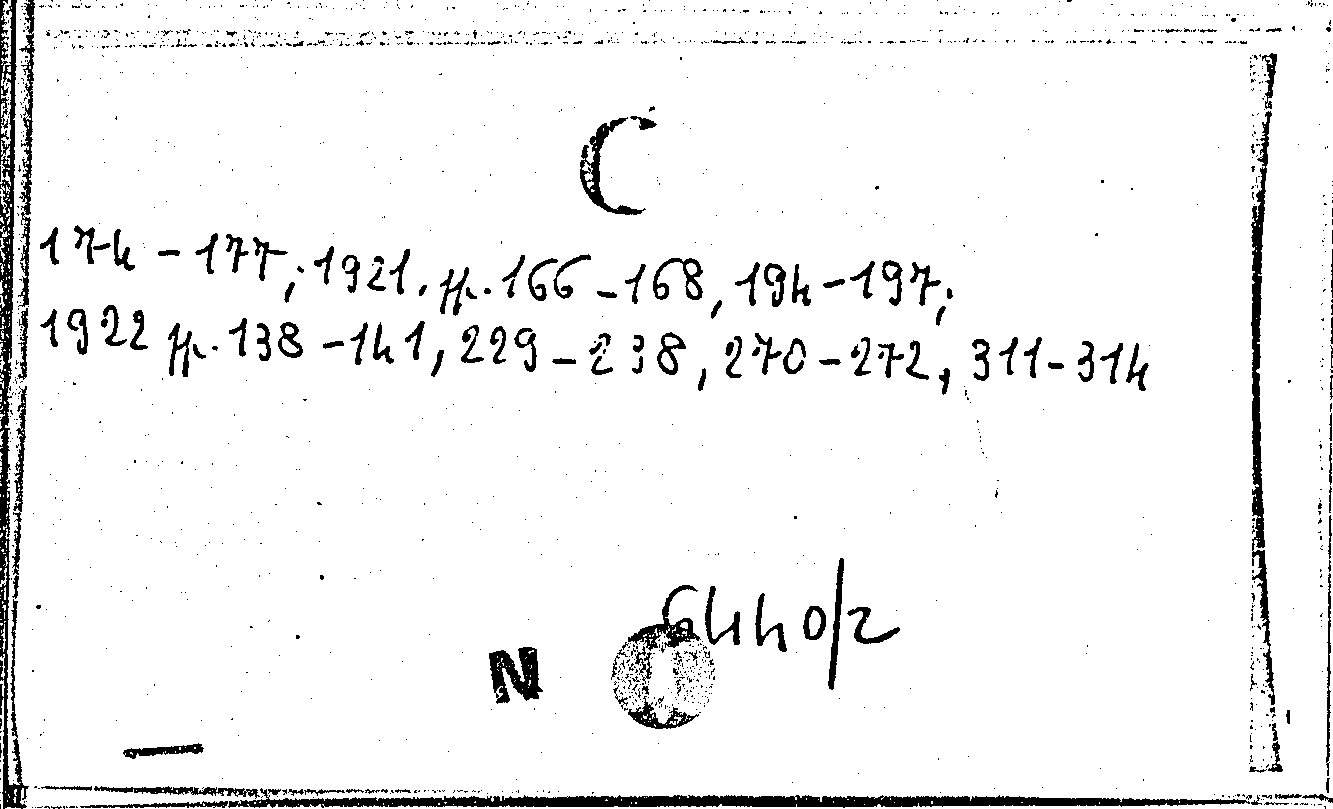 C
174 - 177; 1921. pp. 166 - 168, 194 - 197;
1922 pp. 138 - 141, 229 - 238, 270 - 272, 311 - 314
6440/2
N